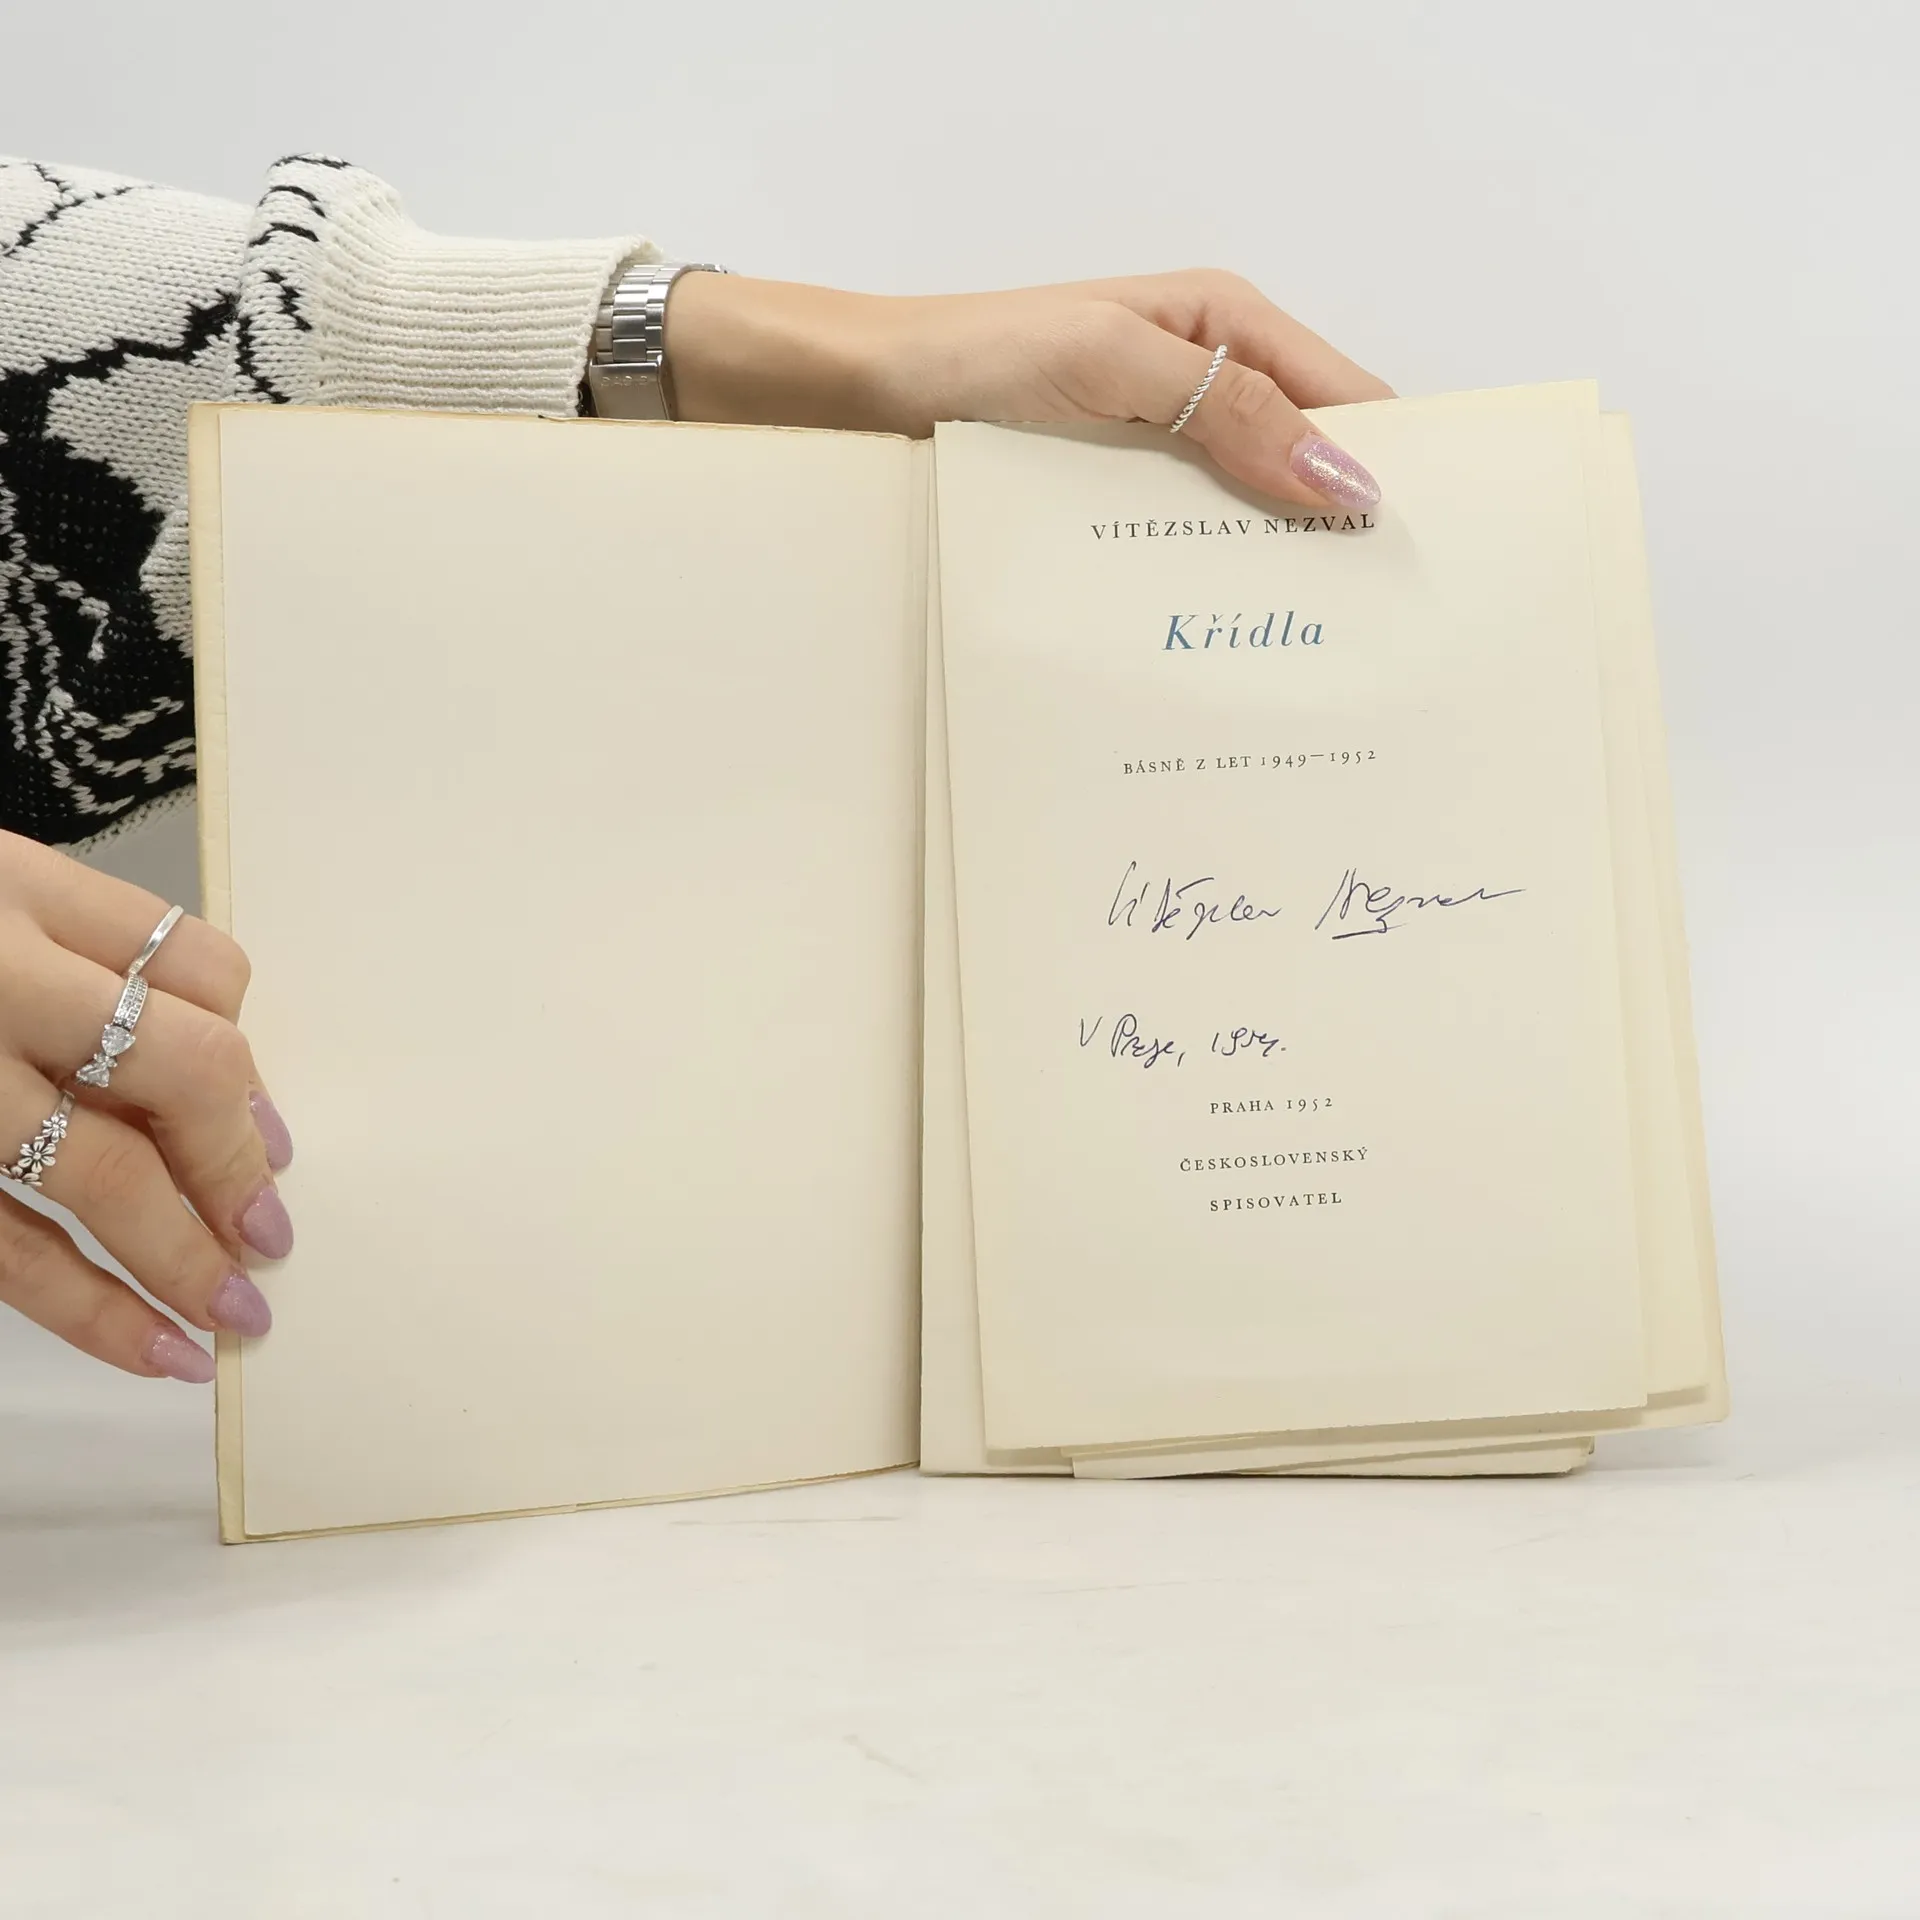 VÍTĚZSLAV NEZVAL
Křídla
BÁSNĚ Z LET 1949—1952
Vítězslav Nezval
V Praze, 1954.
PRAHA 1952
ČESKOSLOVENSKÝ
SPISOVATEL